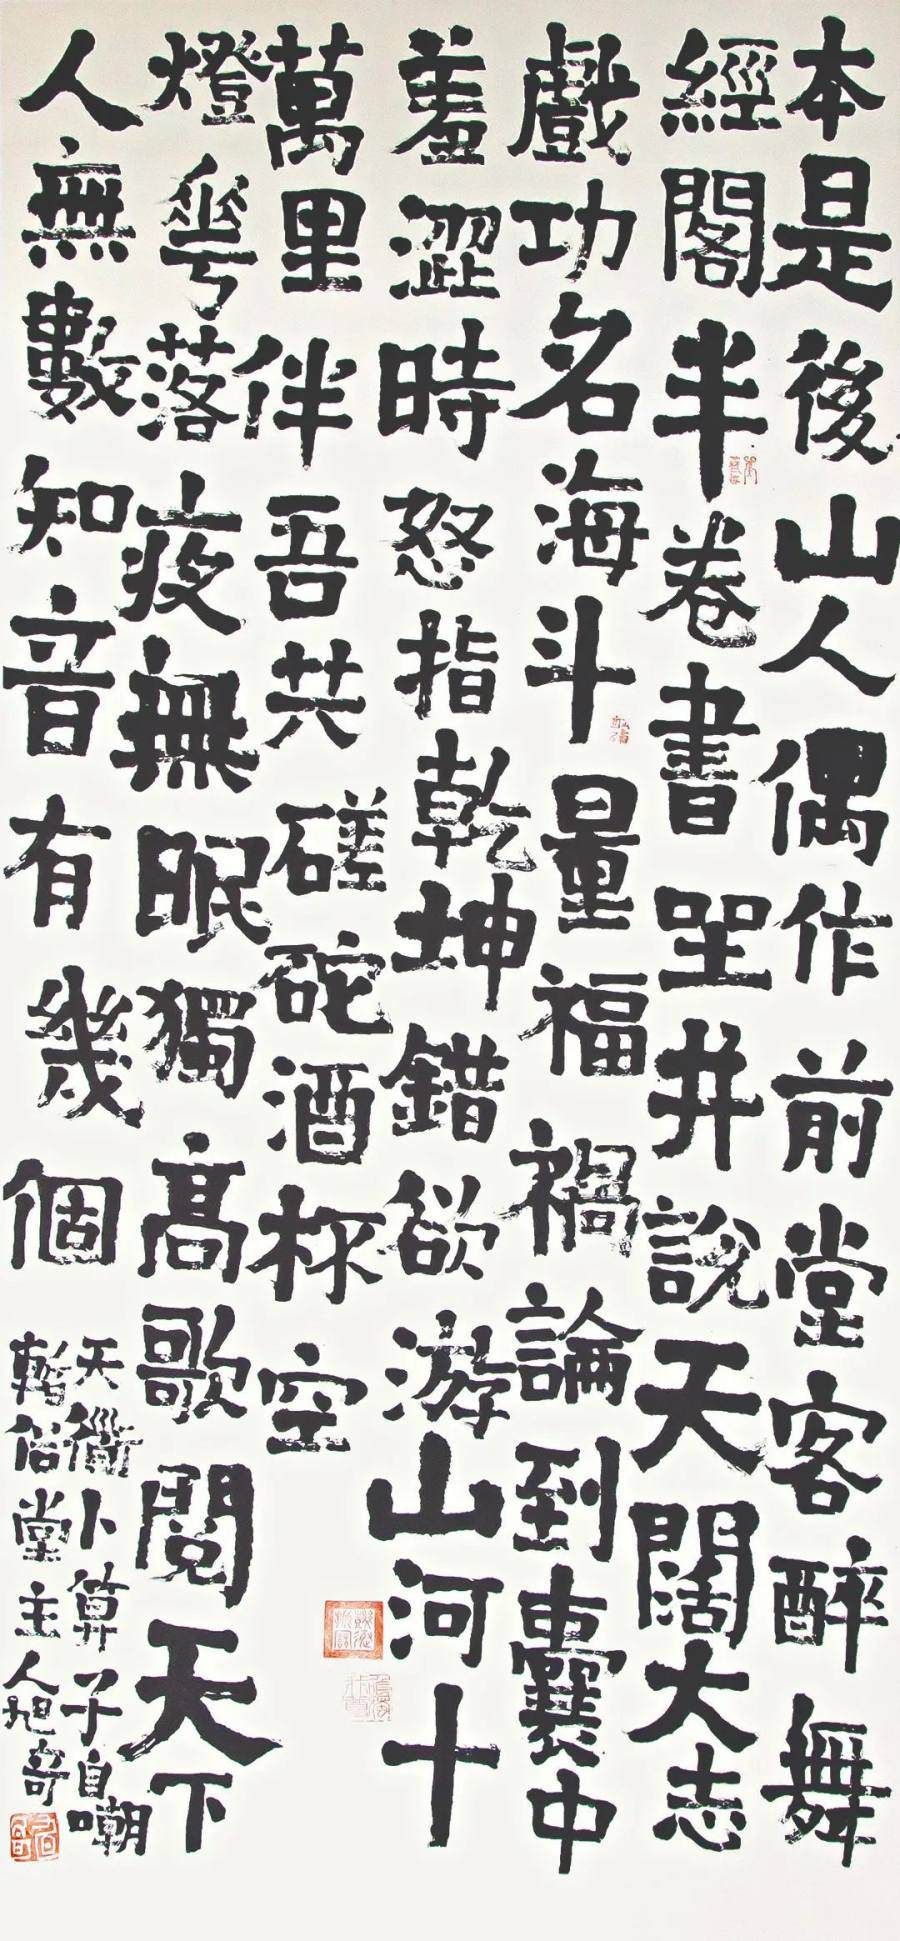 本是後山人偶作前堂客醉舞
經閣半卷書坐井說天闊大志
戲功名海斗量福禍論到囊中
羞澀時怒指乾坤錯欲游山河十
萬里伴吾共磋砣酒杯空
燈華落夜無眠獨高歌閱天下
人無數知音有幾個
天卜算子自嘲
俗堂主人旭奇